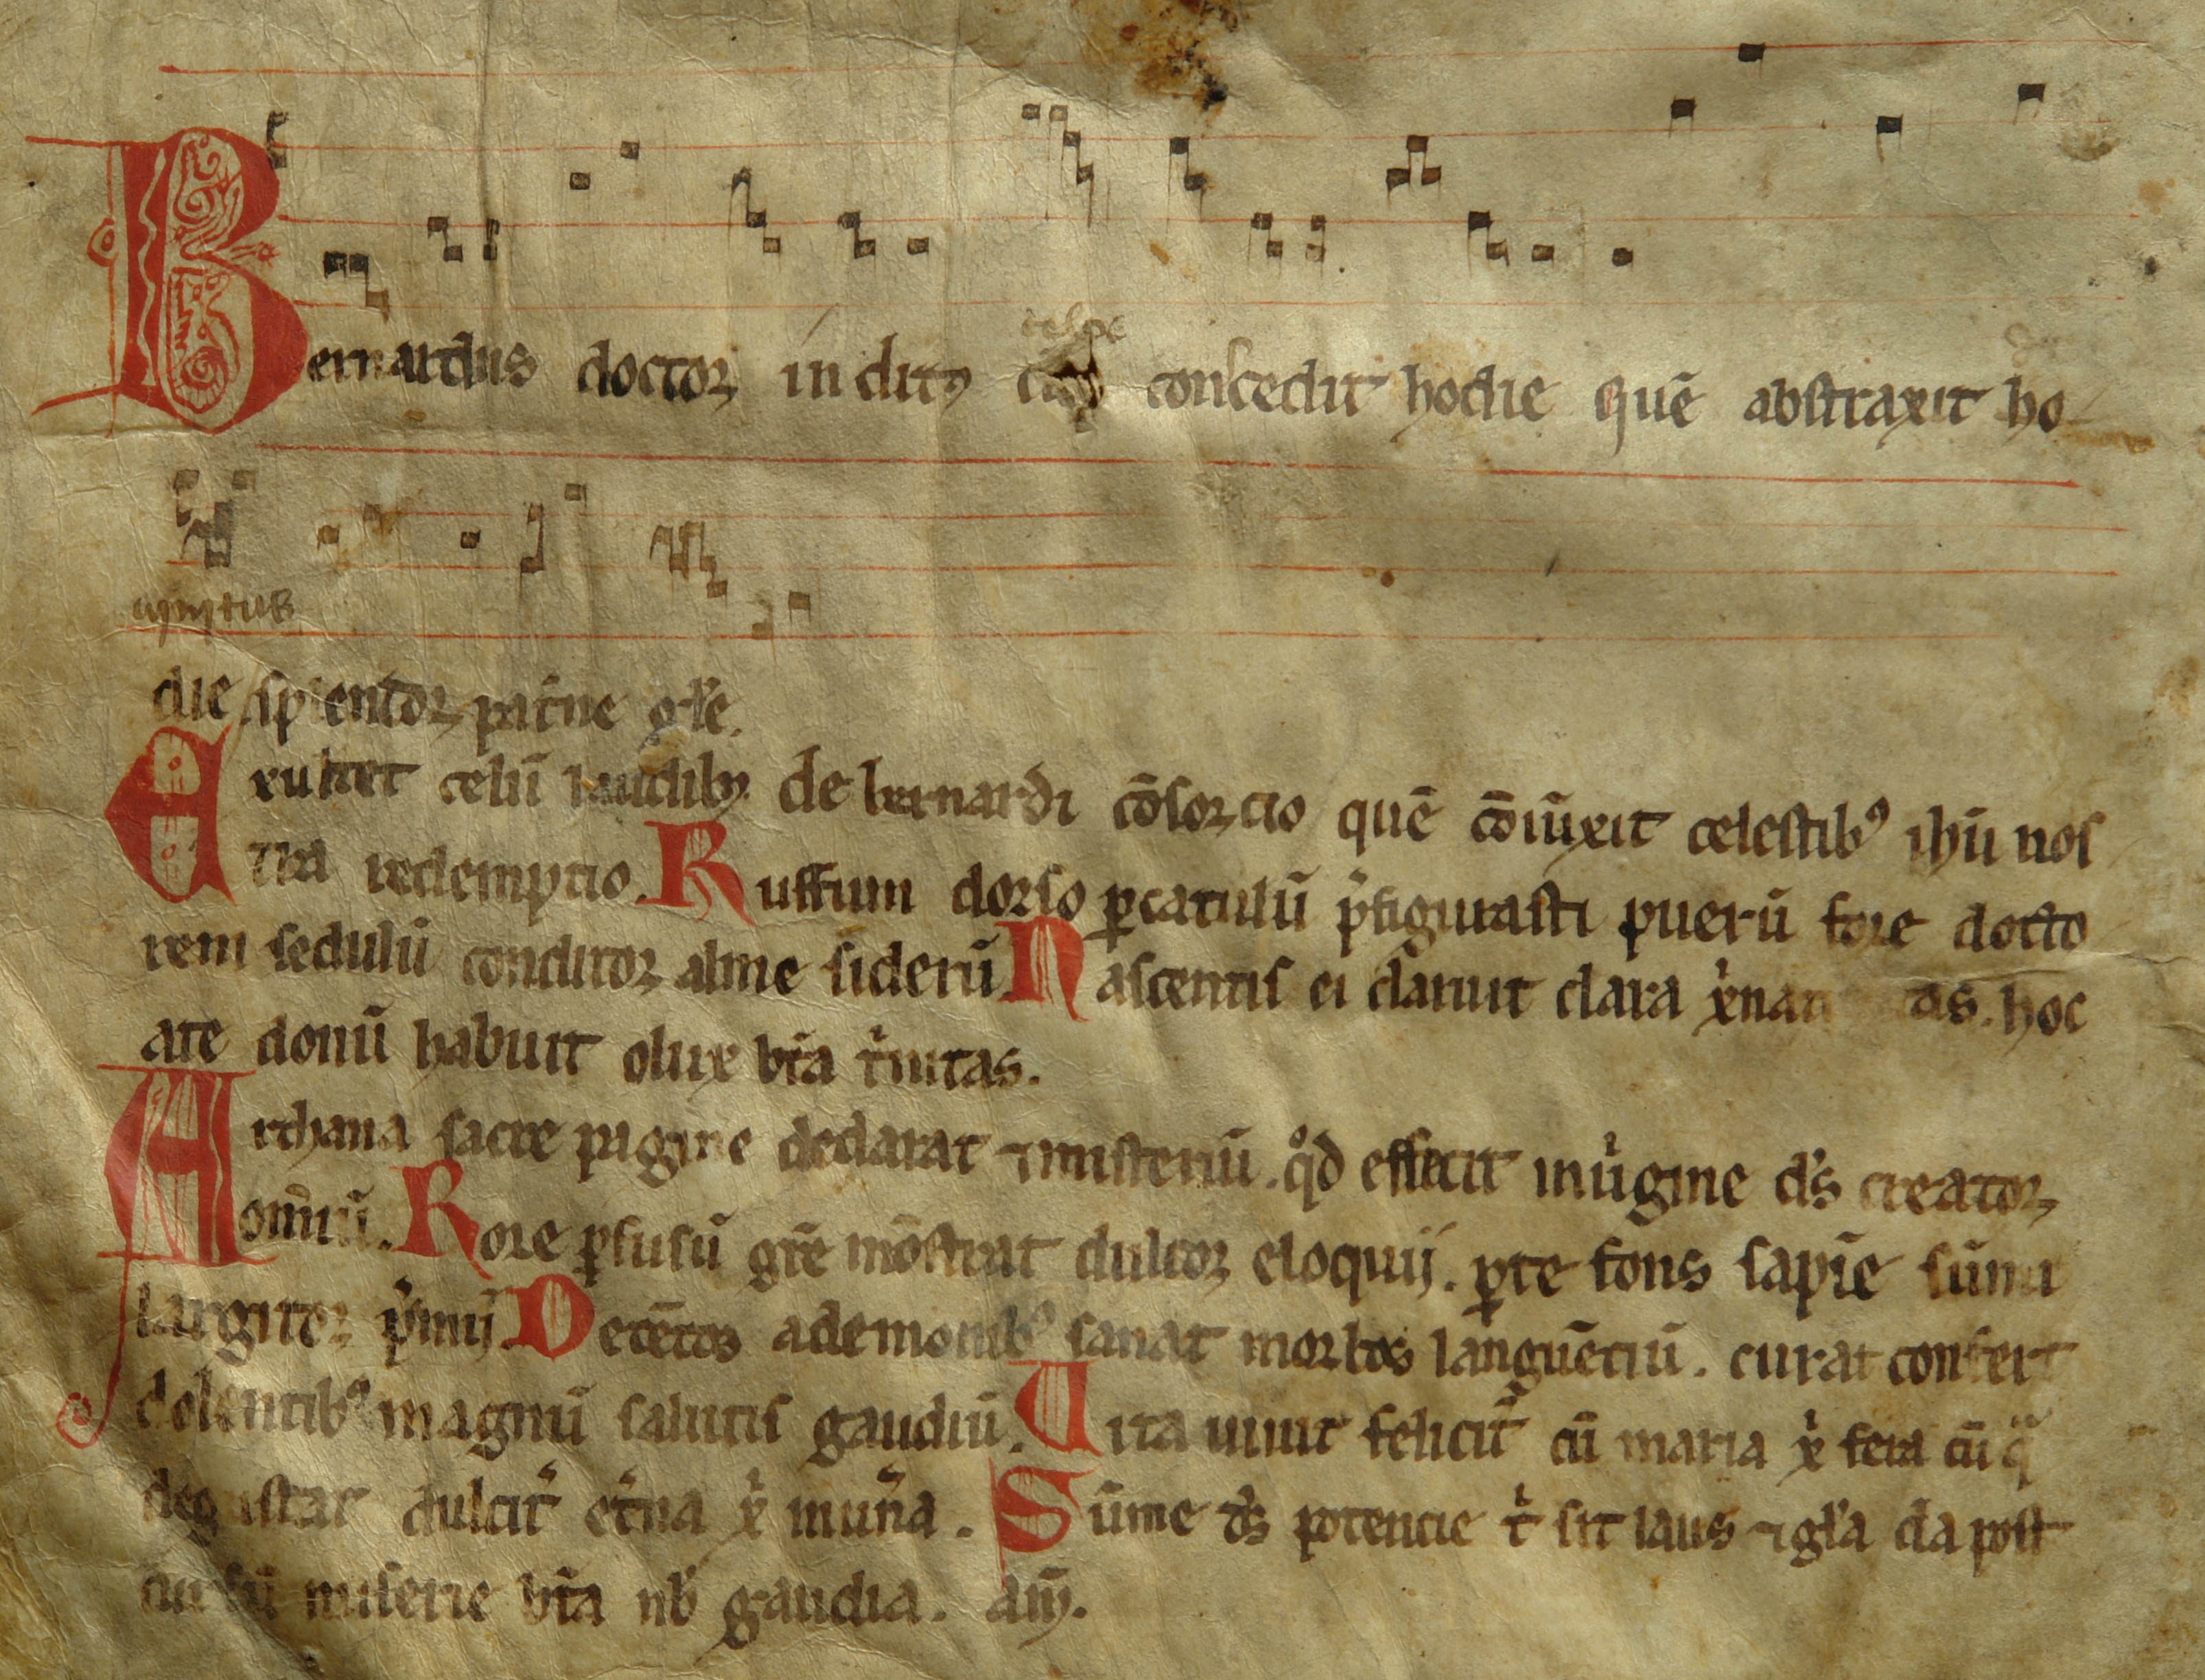 Bernardus doctor inclitꝰ conscedit hodie quē abstraxit ho
die splendor patˀne głe.
Exultet celū laudibꝫ de bernardi cōsorcio quē cōiūxit celestibꝰ ihū nos
tra redemptio. Ruffum dorso ꝑ catulū pˀfigurasti puerū fore docto
rem sedulū conditor alme siderū Nascentis ei claruit clara xˀ hoc
a te donū habuit o lux bˉta tˀnitas.
Archana sacre pagine declarat ⁊ misteriū. qͦd effecit in uˀgine dˀs creator
omˉiū. Rore ꝑfusū grˉe mōstrat dulcor eloquij. ꝑ te fons sapiˉe sūmi
largitor pˀmij Detētos a demonibꝰ sanat morbos languētiū. curat confert
dolentibꝰ magnū salutis gaudiū. Uita uiuit felicitˀ cū maria xˀ fera cū qᷓ
degustat dulcitˀ etˀna xˀ munˀa. Sūme dˀs potencie tˀ sit laus ⁊ głˀa da post
cursū miserie bˉta nbˀ gaudia. am̄.